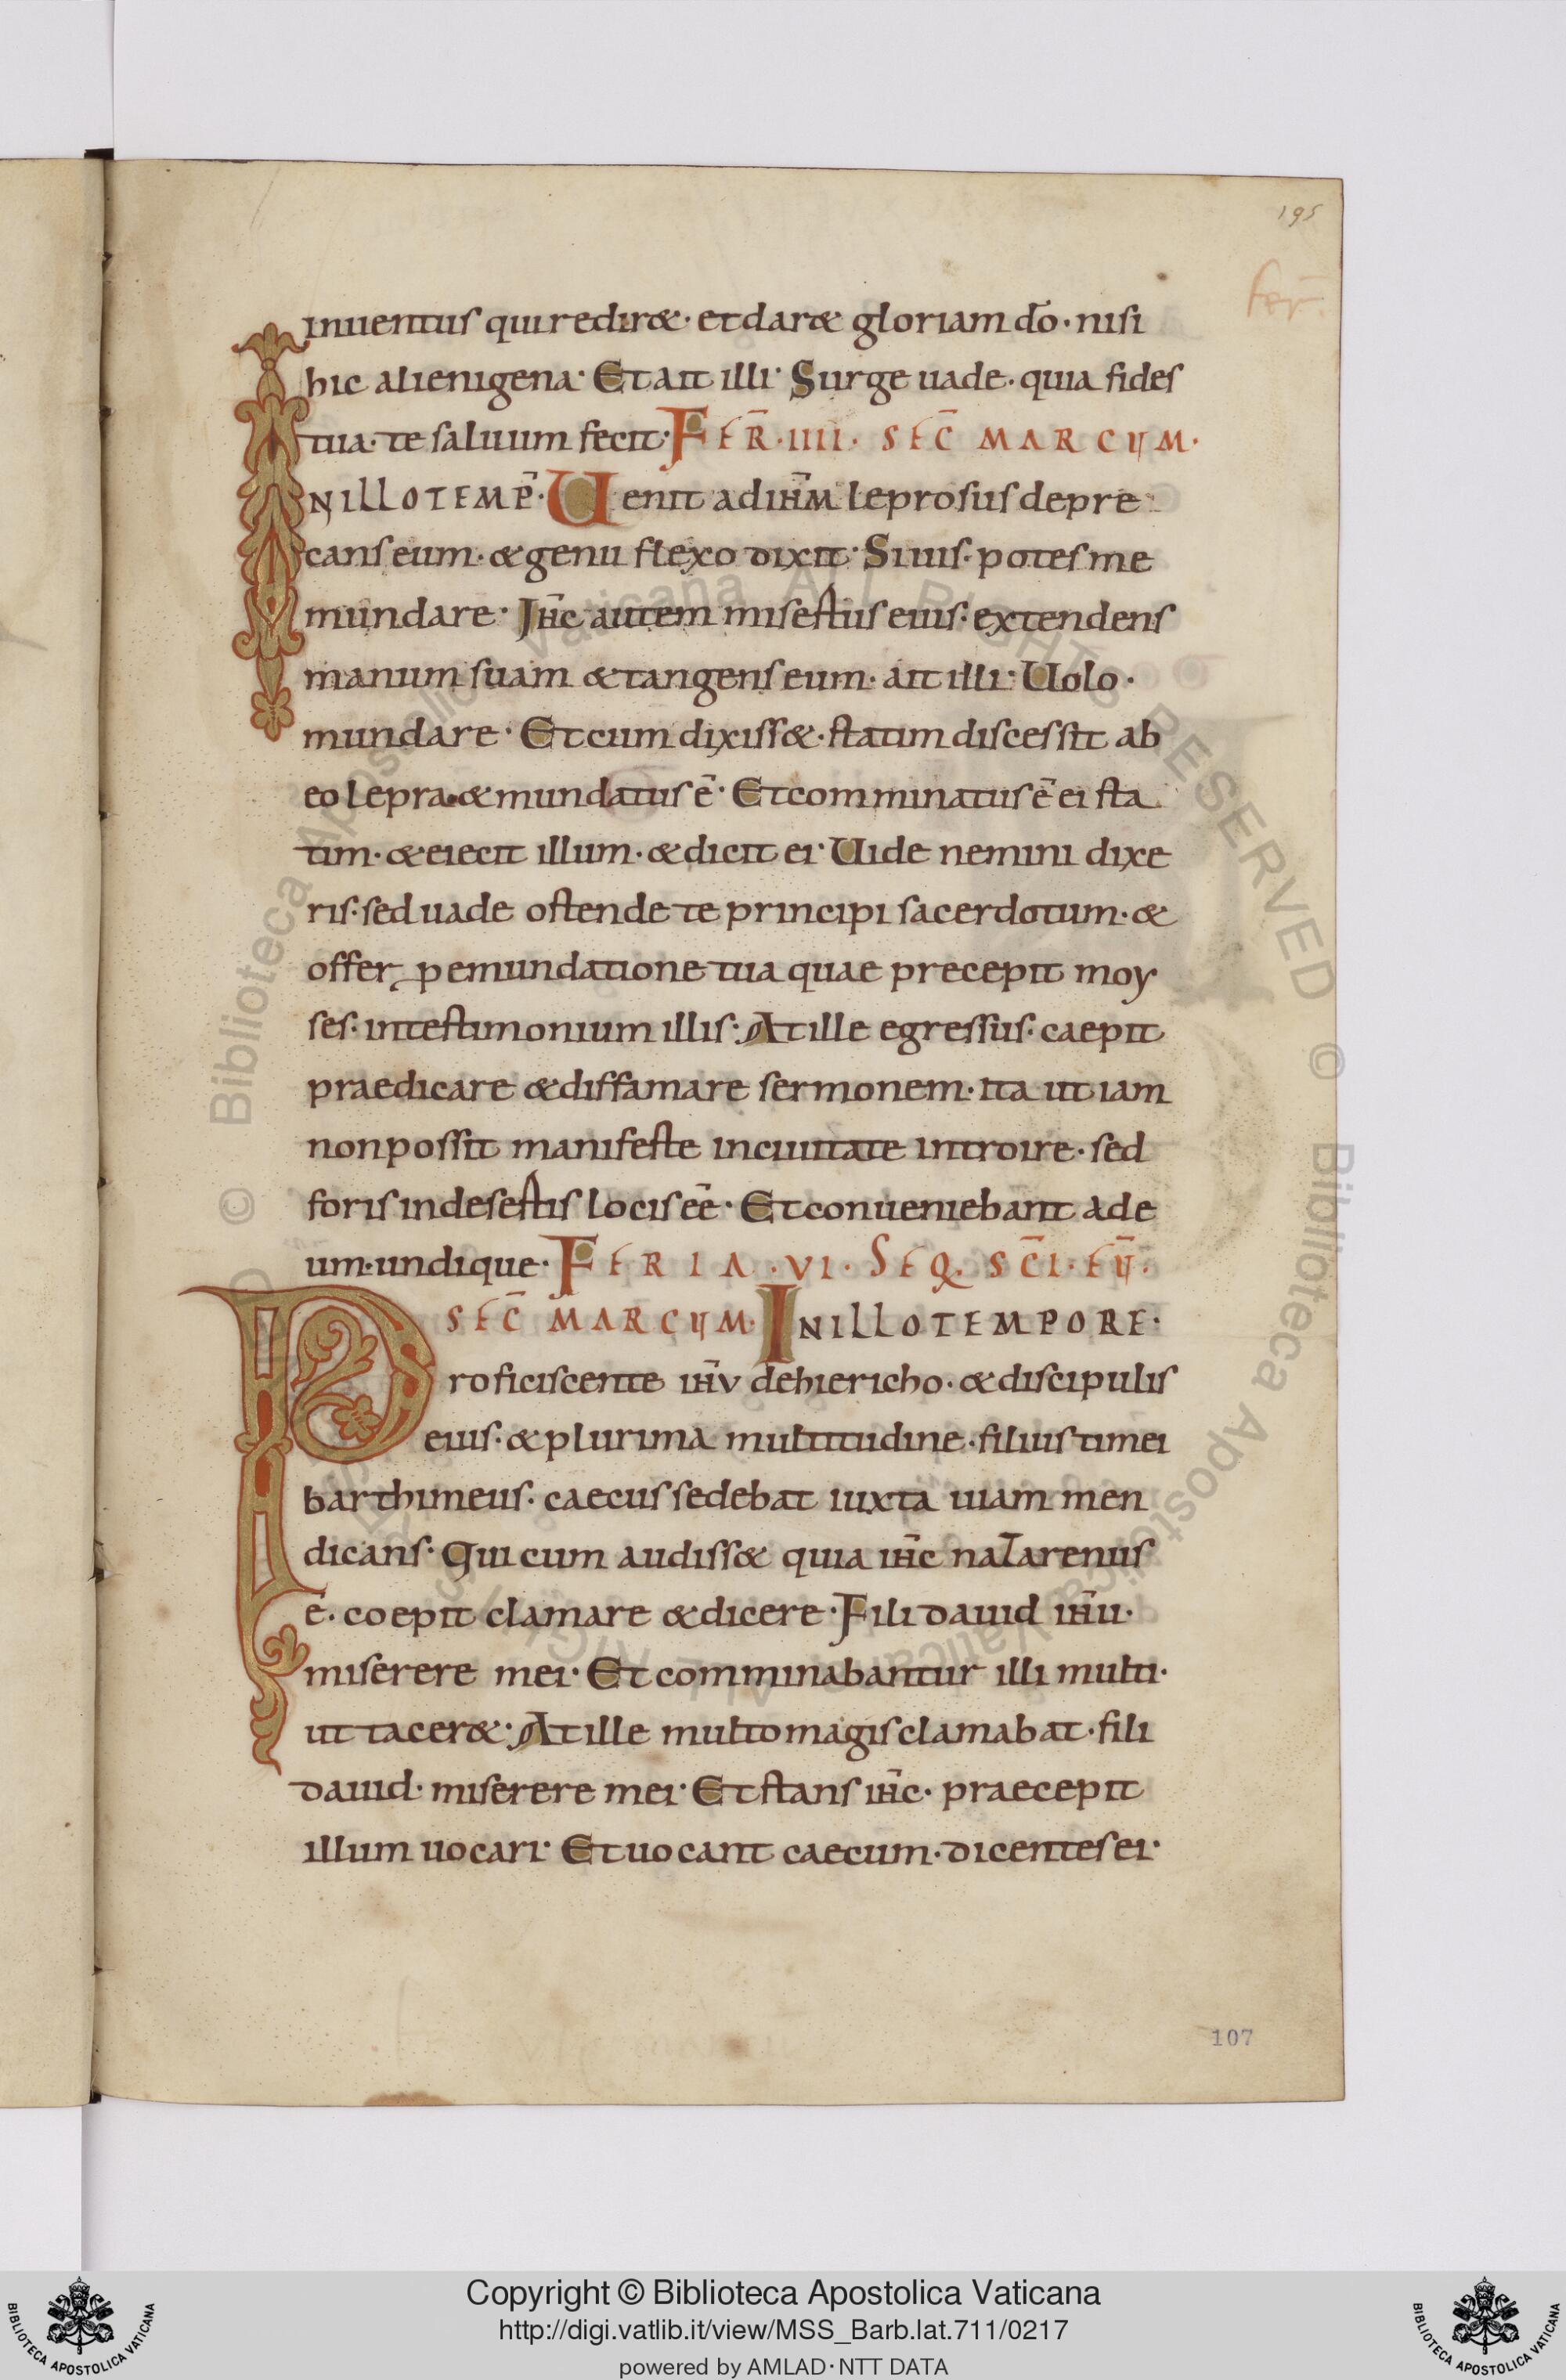 195
fer̄.
inuentus qui rediret· et daret gloriam dō· nisi
hic alienigena· Et ait illi· Surge uade· quia fides
tua· te saluum fecit· FER̄·IIII· SEC̄ MARCUM·
INILLOTEMP̄· Uenit ad ih̄m leprosus depre
cans eum· & genu flexo dixit· Si uis· potes me
mundare· Ih̄c autem misertus eius· extendens
manum suam & tangens eum· ait illi· Uolo·
mundare· Et cum dixiss&· statim discessit ab
eo lepra· & mundatus ē· Et comminatus ē ei sta
tim· & eiecit illum· & dicit ei· Uide nemini dixe
ris· sed uade ostende te principi sacerdotum· &
offer ꝓ emundatione tua quae precepit moy
ses· in testimonium illis· At ille egressus· caepit
praedicare & diffamare sermonem· ita ut iam
non possit manifeste in ciuitate introire· sed
foris in desertis locis eē· Et conueniebant ad e
um· undique· FERIA·VI·SEQ·SC̄I·EŪ·
SEC̄ MARCUM· INILLOTEMPORE·
Proficiscente ih̄v de hiericho· & discipulis
eius· & plurima multitudine· filius timei
barthimeus· caecus sedebat iuxta uiam men
dicans· Qui cum audiss& quia ih̄c nazarenus
ē· coepit clamare & dicere· Fili dauid ih̄u·
miserere mei· Et comminabantur illi multi·
ut tacer&· At ille multo magis clamabat· fili
dauid· miserere mei· Et stans ih̄c· praecepit
illum uocari· Et uocant caecum· dicentes ei·
107
© Biblioteca Apostolica Vaticana ALL RIGHTS RESERVED © Biblioteca Apostolica Vaticana ALL RIGHTS RESERVED
Copyright © Biblioteca Apostolica Vaticana
http://digi.vatlib.it/view/MSS_Barb.lat.711/0217
powered by AMLAD·NTT DATA
BIBLIOTECA APOSTOLICA VATICANA
BIBLIOTECA APOSTOLICA VATICANA